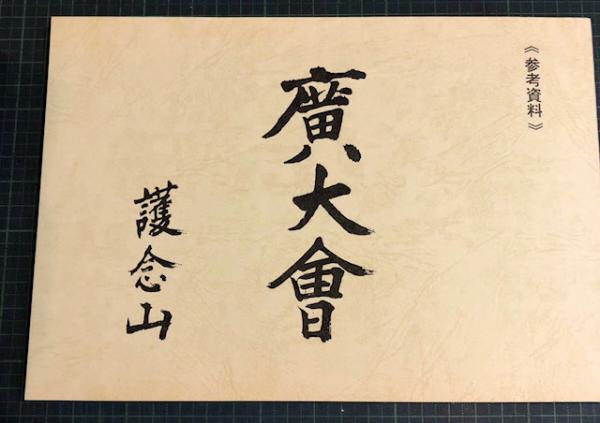 《参考資料》
廣大會
護念山